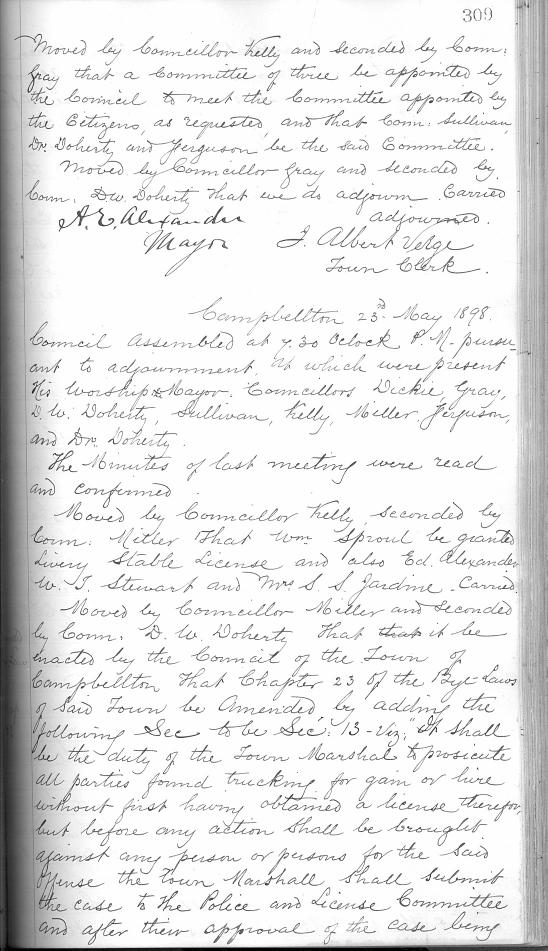 309
Moved by Councillor Kelly and seconded by Coun:
Gray that a Committee of three be appointed by
the Council to meet the Committee appointed by
the Citizens, as requested, and that Coun: Sullivan,
Dr. Doherty and Ferguson be the said Committee.
Moved by Councillor Gray and seconded by
Coun. D.W. Doherty that we do adjourn. Carried
adjourned.
A. E. Alexander
Mayor
J. Albert Verge
Town Clerk.
Campbellton 23rd May 1898.
Council assembled at 7.30 Oclock P.M. pursu-
ant to adjournment, at which were present
His Worship Mayor. Councillors Dickie, Gray,
D.W. Doherty, Sullivan, Kelly, Miller Ferguson,
and Dr. Doherty.
The Minutes of last meeting were read
and confirmed
Moved by Councillor Kelly, seconded by
Coun: Miller That Wm Sproul be granted
Livery Stable License and also Ed. Alexander
W. J. Stewart and Mrs S. S. Jardine. Carried.
Moved by Councillor Miller and seconded
by Coun. D. W. Doherty That that it be
enacted by the Council of the Town of
Campbellton That Chapter 23 of the Bye-Laws
of Said Town be Amended by adding the
following Sec to be Sec: 13 - Viz, "It shall
be the duty of the Town Marshal to prosicute
all parties found trucking for gain or hire
without first having obtained a license therefor,
but before any action shall be brought
against any person or persons for the said
offense the Town Marshall shall submit
the case to the Police and License Committee
and after their approval of the case being